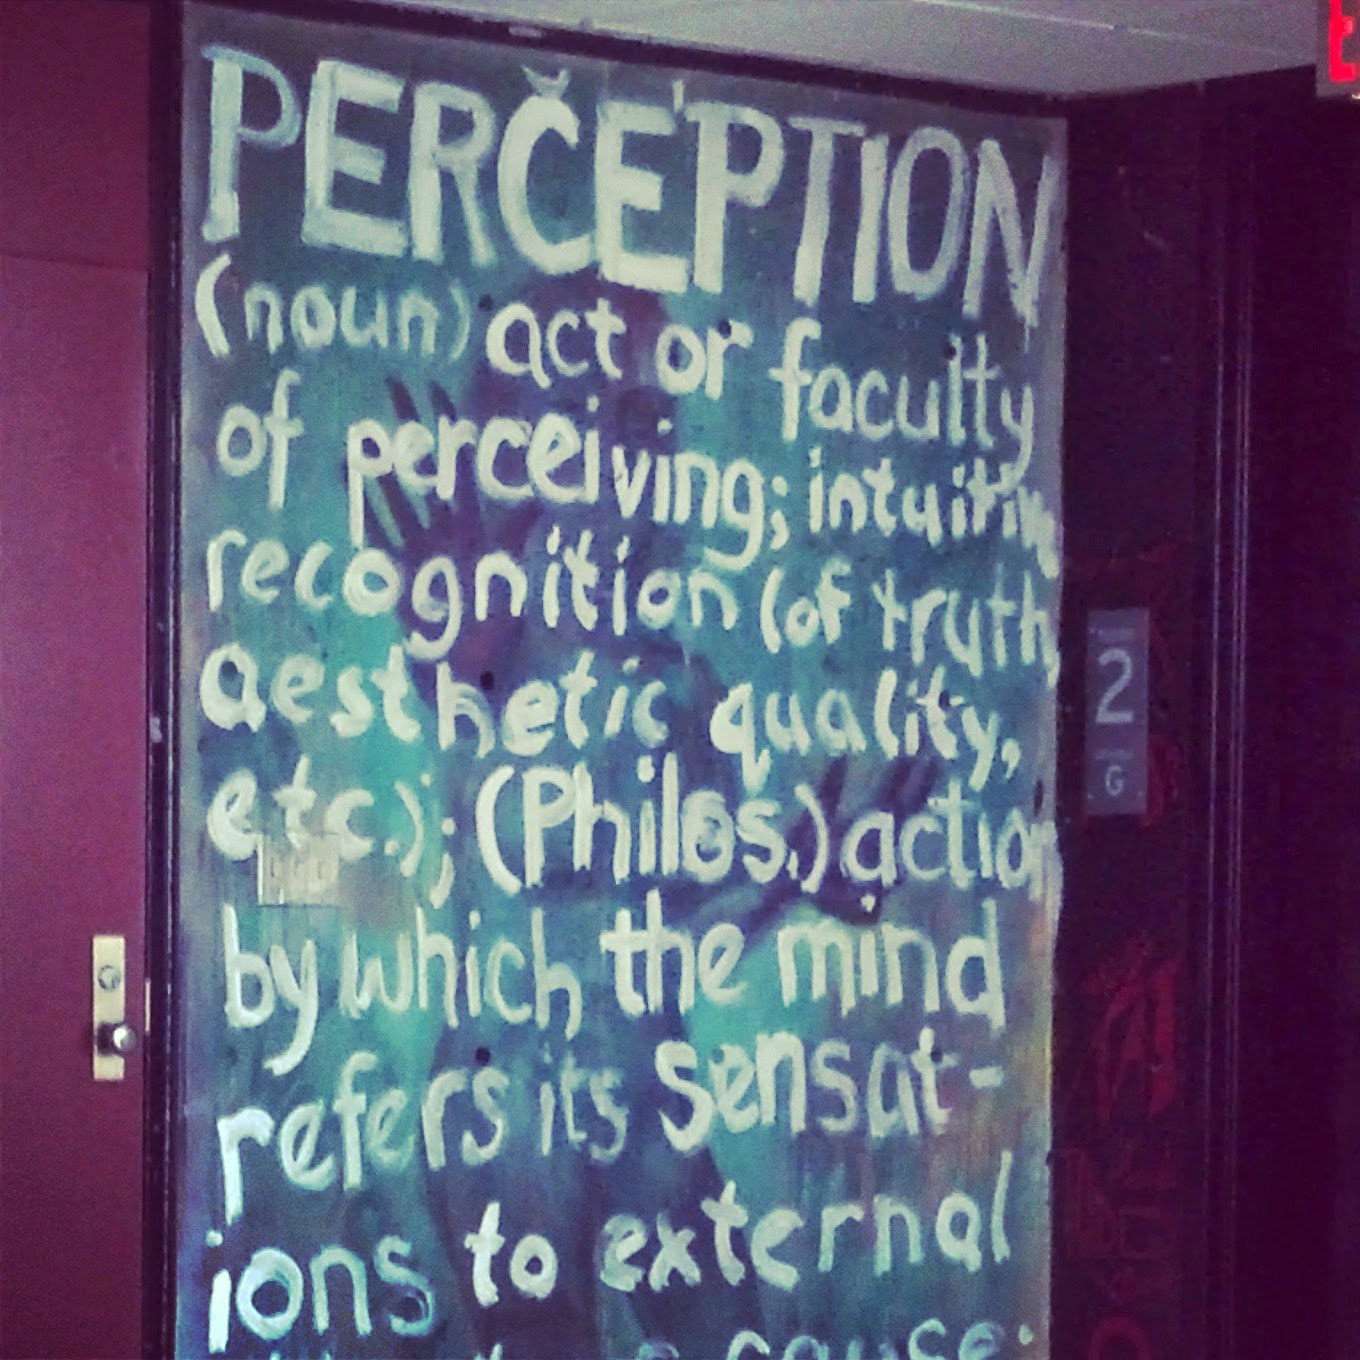 PERČE'PTION
(noun) act or faculty
of perceiving; intuitive
recognition (of truth,
aesthetic quality,
etc.); (Philos.) action
by which the mind
refers its sensat-
ions to external
cause.
2
G
G